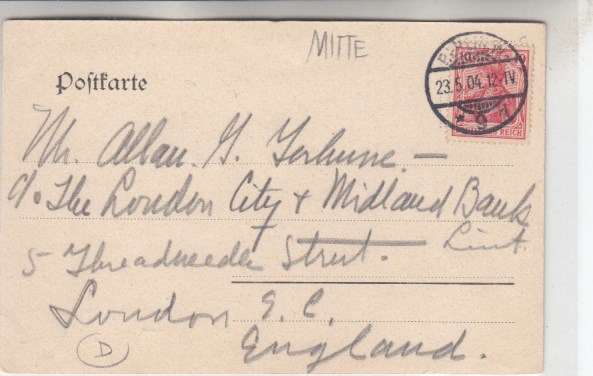 MITTE
Postkarte
23.5.04.12-1V.
* 9 1
REICH
Mr. Allan. G. Terhune. —
c/o. The London City & Midland Bank
Limt.
5 Threadneedle Street.
London E. C.
England.
D